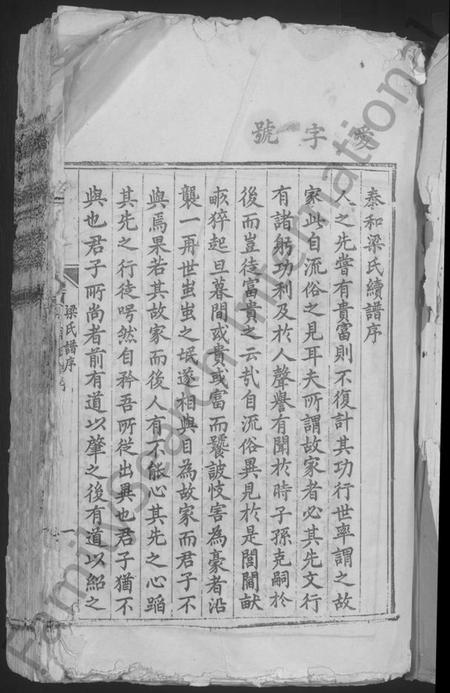 字號
泰和梁氏續譜序
人之先嘗有貴富則不復計其功行世率謂之故
家此自流俗之見耳夫所謂故家者必其先文行
有諸躬功利及於人聲譽有聞於時子孫克嗣於
後而豈徒富貴之云哉自流俗異見於是閭閻畎
畝猝起旦暮間或貴或富而饕詖忮害為豪者沿
襲一再世蚩蚩之氓遂相與目為故家而君子不
與焉果若其故家而後人有不能心其先之心蹈
其先之行徒咢然自矜吾所從出異也君子猶不
與也君子所尚者前有道以肇之後有道以紹之
梁氏譜序
一
FamilySearch International